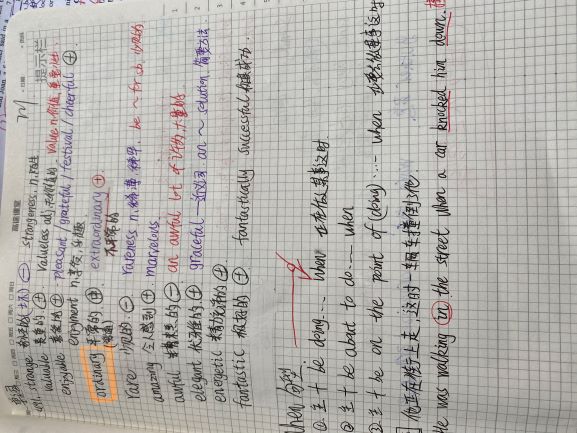 高效课堂
提示栏
strange 奇怪的 ⊖ strangeness n.陌生
valuable 贵重的 ⊕ valueless adj.无价值的 value n.价值
enjoyable ⊕ pleasant / grateful / festival / cheerful ⊕
enjoyment n.享受,乐趣
ordinary 平常的 extraordinary ⊕
不平常的
rare 少见的 ⊖ rareness n. be ~ for sb 少见的
amazing 令人感到 ⊕ marvelous
awful ⊖ an awful lot of 许多,大量的
elegant 优雅的 ⊕ graceful an ~ solution 简要方法
energetic 精力充沛的 ⊕
fantastic 极好的 ⊕ fantastically successful 成功
When 句型
① 主 + be doing … when 正在做某事这时
② 主 + be about to do … when
③ 主 + be on the point of (doing) … when 正要做某事这时
他正在街上走,这时一辆车撞倒了他.
He was walking in the street when a car knocked him down.